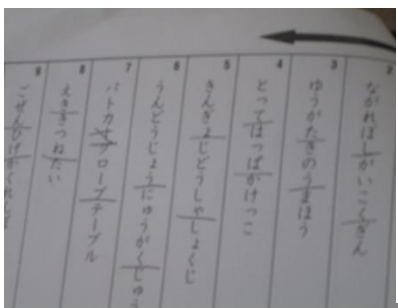 2
ながれぼしがいこくぎん
3
ゆうがたきのうまほう
4
とってはっぱがけっこ
5
きんぎょじどうしゃしょくじ
6
うんどうじょうにゅうがくじゅう
7
パトカサブローブテーブル
8
えきぎつねたい
9